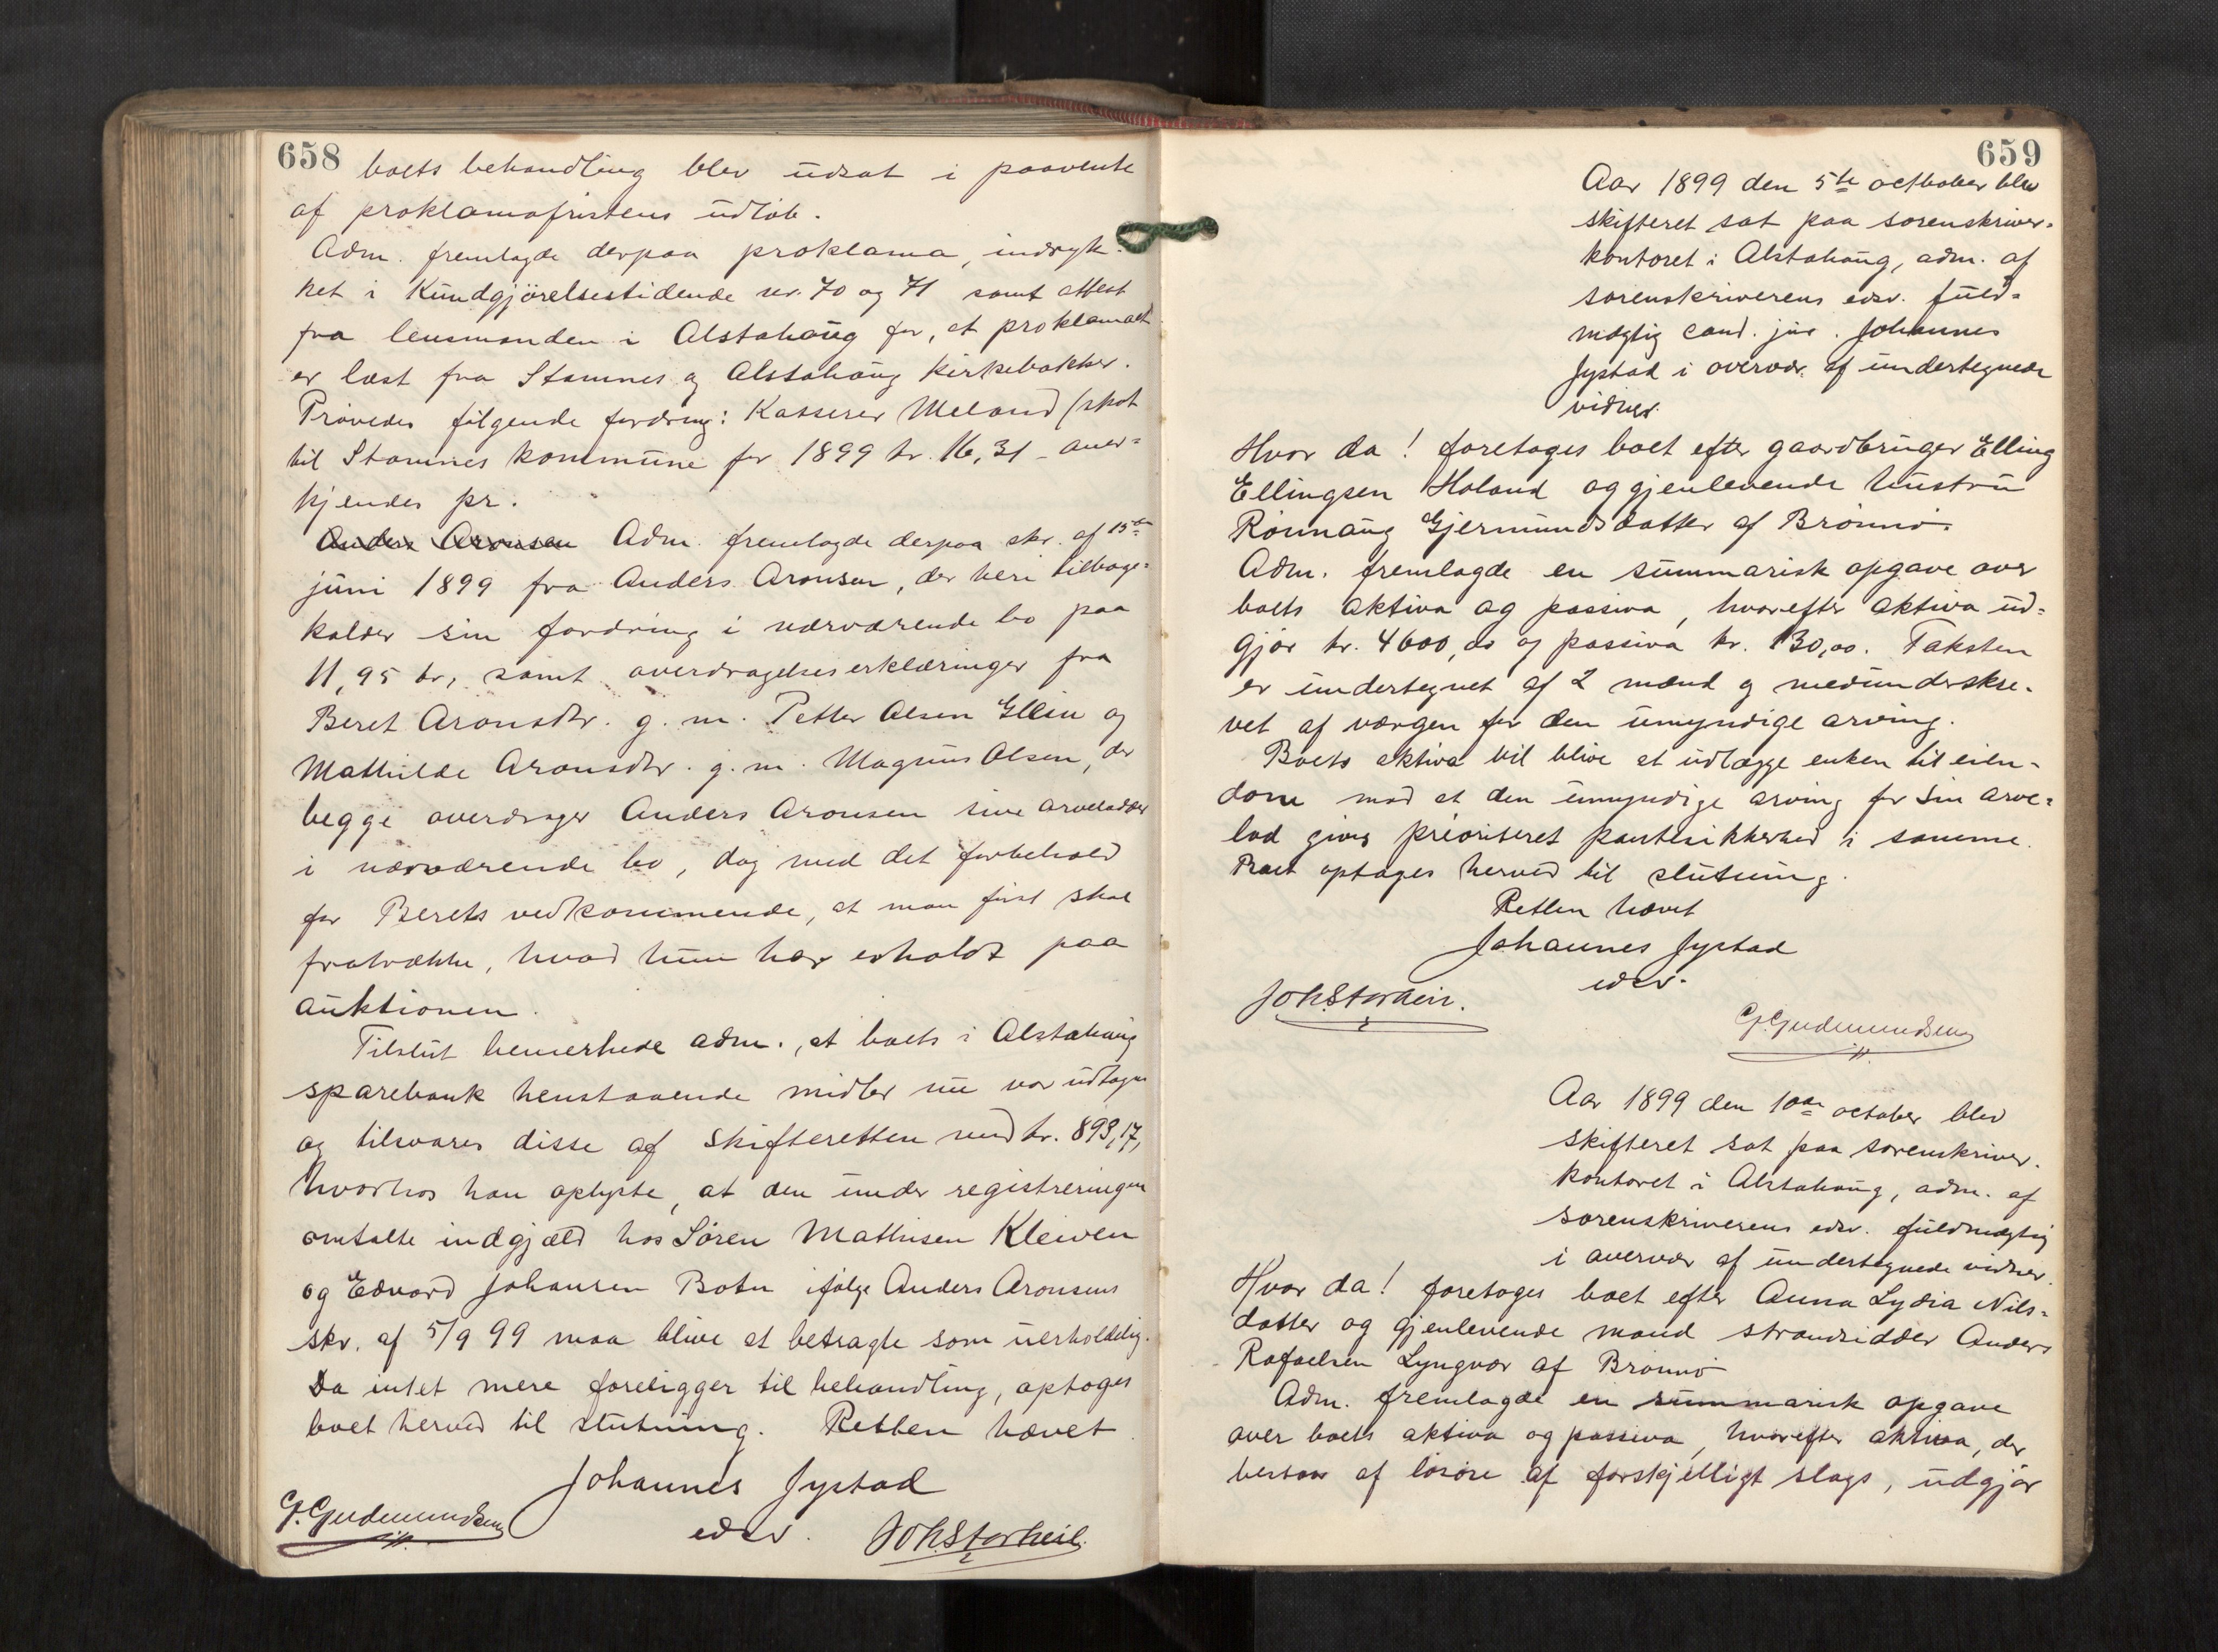 658
boets behandling blev udsat i paavente
af proklamafristens udløb.
Adm. fremlagde derpaa proklama, indryk-
ket i Kundgjörelsestidende nr. 70 og 71 samt attest
fra lensmanden i Alstahaug for, at proklamaet
er læst fra Stamnes og Alstahaug kirkebakker.
Prövedes fölgende fordring: Kasserer Meland (skat
til Stamnes kommune for 1899 kr. 16,31 - aner=
kjendes pr.
Anders Aronsen Adm. fremlagde derpaa skr. af 15de
juni 1899 fra Anders Aronsen, der heri tilbage=
kalder sin fordring i nærværende bo paa
11,95 kr, samt overdragelseserklæringer fra
Beret Aronsdtr. g. m. Petter Olsen og
Mathilde Aronsdtr. g. m. Magnus Olsen, der
begge overdrager Anders Aronsen sine arvelodder
i nærværende bo, dog med det forbehold
for Berets vedkommende, at man först skal
fratrække, hvad hun har erholdt paa
auktionen.
Tilslut bemerkede adm., at boets i Alstahaug
sparebank henstaaende midler nu var udtagne
og tilsvares disse af skifteretten med kr. 893,17,
hvorhos han oplyste, at den under registreringen
omtalte indgjæld hos Sören Mathisen Kleiven
og Edvard Johansen Botn ifölge Anders Aronsens
skr. af 5/9 99 maa blive at betragte som uerholdelig.
Da intet mere foreligger til behandling, optoges
boet herved til slutning. Retten hævet.
Johannes Jystad
edsv.
G. Gudmundsen
Joh Storheil.
659
Aar 1899 den 5te octbober blev
skifteret sat paa sorenskriver=
kontoret i Alstahaug, adm. af
sorenskriverens edsv. fuld=
mægtig cand. jur. Johannes
Jystad i overvær af undertegnede
vidner.
Hvor da! foretoges boet efter gaardbruger Elling
Ellingsen Holand og gjenlevende hustru
Rönnaug Gjermundsdatter af Brönnö.
Adm. fremlagde en summarisk opgave over
boets aktiva og passiva, hvorefter aktiva ud=
gjør kr. 4600,00 og passiva kr. 130,00. Taksten
er undertegnet af 2 mænd og medunderskre-
vet af værgen for den umyndige arving.
Boets aktiva vil blive at udlægge enken til eien-
dom mod at den umyndige arving for sin arve=
lod gives prioriteret pantesikkerhed i samme.
Boet optages herved til slutning.
Retten hævet
Johannes Jystad
edsv.
Joh Storheil.
G. Gudmundsen
Aar 1899 den 10de october blev
skifteret sat paa sorenskriver.
kontoret i Alstahaug, adm. af
sorenskriverens edsv. fuldmægtig
i overvær af undertegnede vidner.
Hvor da! foretoges boet efter Anna Lydia Nils=
datter og gjenlevende mand strandsidder Anders
Rafaelsen Lyngvær af Brönnö
Adm. fremlagde en summarisk opgave
over boets aktiva og passiva, hvorefter aktiva, der
bestaar af lösöre af forskjelligt slags, udgjör